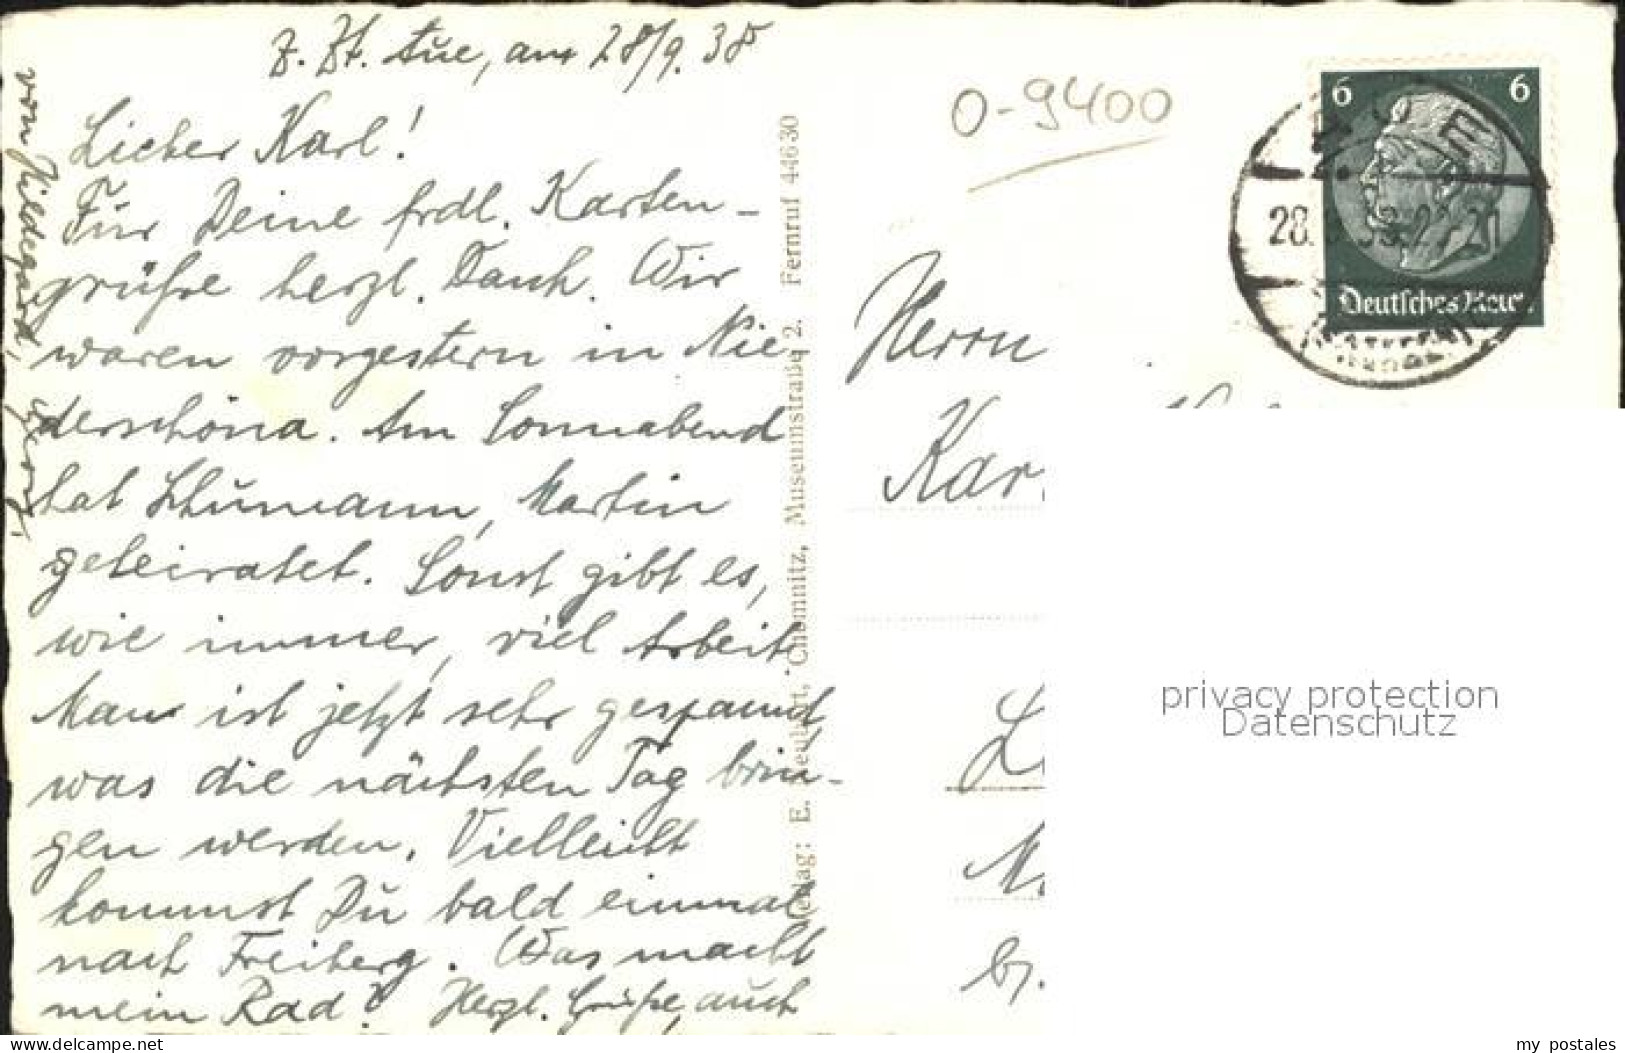 z. Zt. Aue, am 28/9. 38
Lieber Karl!
Für Deine frdl. Karten-
grüße herzl. Dank. Wir
waren vorgestern in Nie
derschöna. Am Sonnabend
hat Schumann, Martin
geheiratet. Sonst gibt es,
wie immer, viel Arbeit.
Man ist jetzt sehr gespannt,
was die nächsten Tag brin-
gen werden. Vielleicht
kommst Du bald einmal
nach Freiberg. Was macht
mein Rad? Herzl. Grüße, auch
von Hildegard,
Verlag: E. Neubert, Chemnitz, Museumstraße 2. Fernruf 44630
O-9400
6 6
Deutsches Reich
AUE
28. 38.-21
Herrn
Kar
L
M.
b/.
privacy protection
Datenschutz
ak-ansichtskarten.de
my postales